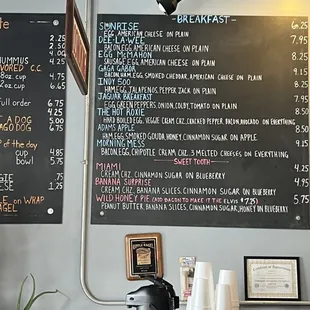 BREAKFAST
SUNRISE 6.25
EGG, AMERICAN CHEESE ON PLAIN
DEE-LA-WEE 7.95
BACON, EGG, AMERICAN CHEESE ON PLAIN
EGG MCMAHON 8.25
SAUSAGE EGG, AMERICAN CHEESE ON PLAIN
GAGA GABOR 9.15
BACON, HAM, EGG, SMOKED CHEDDAR, AMERICAN CHEESE ON PLAIN
INDY 500 8.25
HAM, EGG, JALAPENOS, PEPPER JACK ON PLAIN
JAGUAR BREAKFAST 7.95
EGG, GREEN PEPPERS, ONION, COLBY, TOMATO ON PLAIN
THE HOT ROXIE 8.50
HARD BOILED EGG, VEGGIE CREAM CHZ, CRACKED PEPPER, BACON, AVOCADO ON EVERYTHING
ADAMS APPLE 8.50
HAM, EGG, SMOKED GOUDA, HONEY, CINNAMON SUGAR ON APPLE
MORNING MESS 9.15
BACON, EGG, CHIPOTLE CREAM CHZ, 3 MELTED CHEESES ON EVERYTHING
SWEET TOOTH
MIAMI 4.25
CREAM CHZ, CINNAMON SUGAR ON BLUEBERRY
BANANA SURPRISE 4.95
CREAM CHZ, BANANA SLICES, CINNAMON SUGAR ON BLUEBERRY
WILD HONEY PIE (ADD BACON TO MAKE IT THE ELVIS $7.25) 5.75
PEANUT BUTTER, BANANA SLICES, CINNAMON SUGAR, HONEY ON BLUEBERRY
2.85
4.50
HUMMUS
FLAVORED C.C.
8oz cup 4.75
2oz cup 6.65
full order 6.65
A DOG 5.00
AGO DOG
of the day
cup 4.55
bowl 5.75
.75
1.25
on WRAP
BAGEL